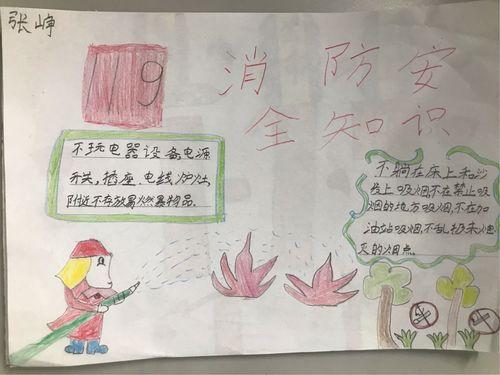 张峥
119
消防安
全知识
不玩电器设备电源
开关,插座.电线.炉灶
附近不存放易燃易爆物品.
不躺在床上和沙
发上吸烟,不在禁止吸
烟的地方吸烟,不在加
油站吸烟,不乱扔未熄
灭的烟点